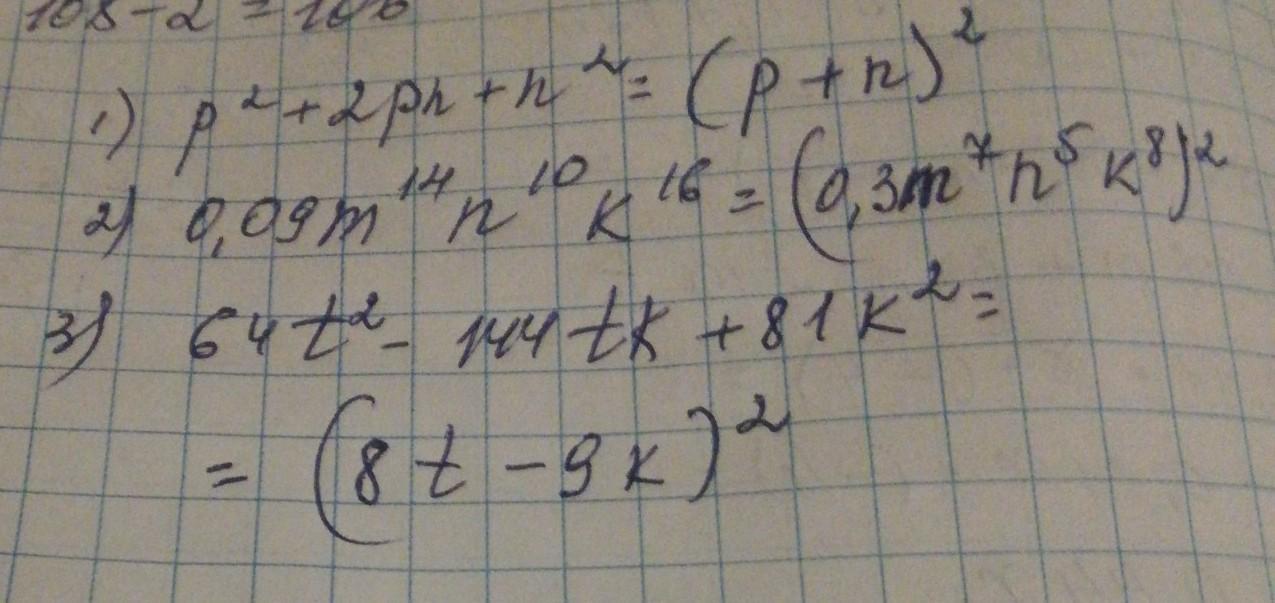 108 - 2 = 106
1) p² + 2pn + n² = (p + n)²
2) 0,09m¹⁴n¹⁰k¹⁶ = (0,3m⁷n⁵k⁸)²
3) 64t² - 144tk + 81k² =
= (8t - 9k)²